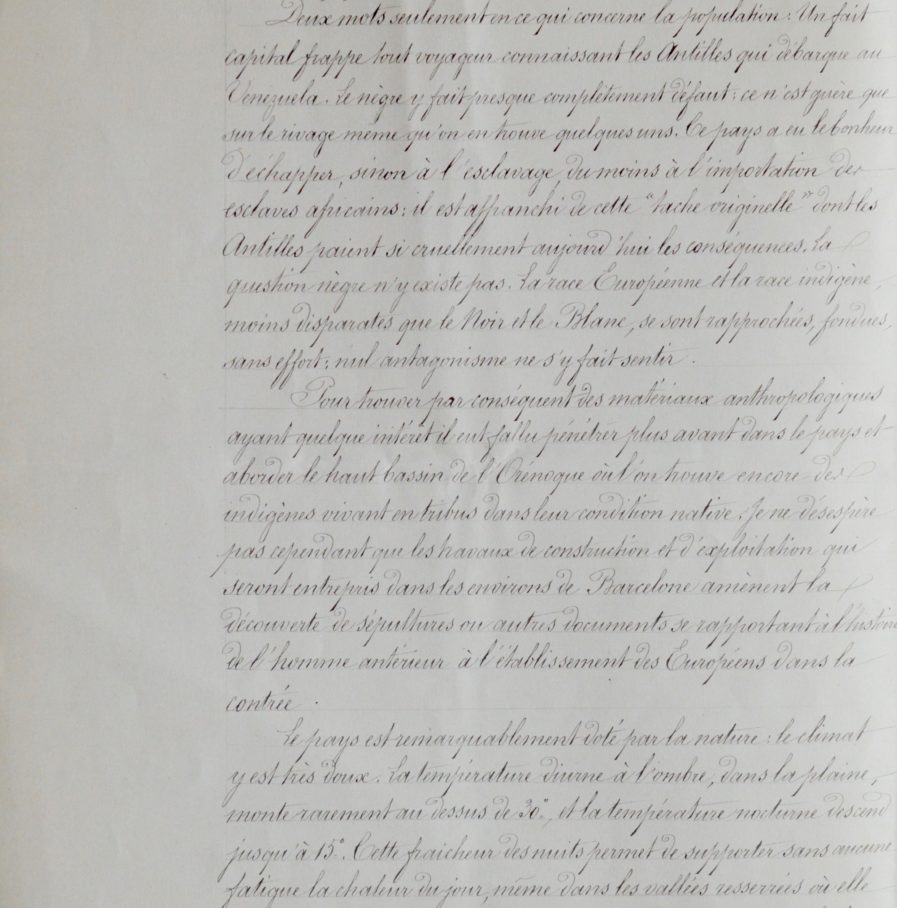 Deux mots seulement en ce qui concerne la population : Un fait
capital frappe tout voyageur connaissant les Antilles qui débarque au
Venezuela. Le nègre y fait presque complètement défaut : ce n'est guère que
sur le rivage même qu'on en trouve quelques uns. Ce pays a eu le bonheur
d'échapper, sinon à l'esclavage du moins à l'importation des
esclaves africains : il est affranchi de cette "tache originelle" dont les
Antilles paient si cruellement aujourd'hui les conséquences. La
question nègre n'y existe pas. La race Européenne et la race indigène,
moins disparates que le Noir et le Blanc, se sont rapprochées, fondues,
sans effort : nul antagonisme ne s'y fait sentir.
Pour trouver par conséquent des matériaux anthropologiques
ayant quelque intérêt il eut fallu pénétrer plus avant dans le pays et
aborder le haut bassin de l'Orénoque où l'on trouve encore des
indigènes vivant en tribus dans leur condition native. Je ne désespère
pas cependant que les travaux de construction et d'exploitation qui
seront entrepris dans les environs de Barcelone amènent la
découverte de sépultures ou autres documents se rapportant à l'histoire
de l'homme antérieur à l'établissement des Européens dans la
contrée.
Le pays est remarquablement doté par la nature : le climat
y est très doux. La température diurne à l'ombre, dans la plaine,
monte rarement au dessus de 30°, et la température nocturne descend
jusqu'à 15°. Cette fraicheur des nuits permet de supporter sans aucune
fatigue la chaleur du jour, même dans les vallées resserrées où elle